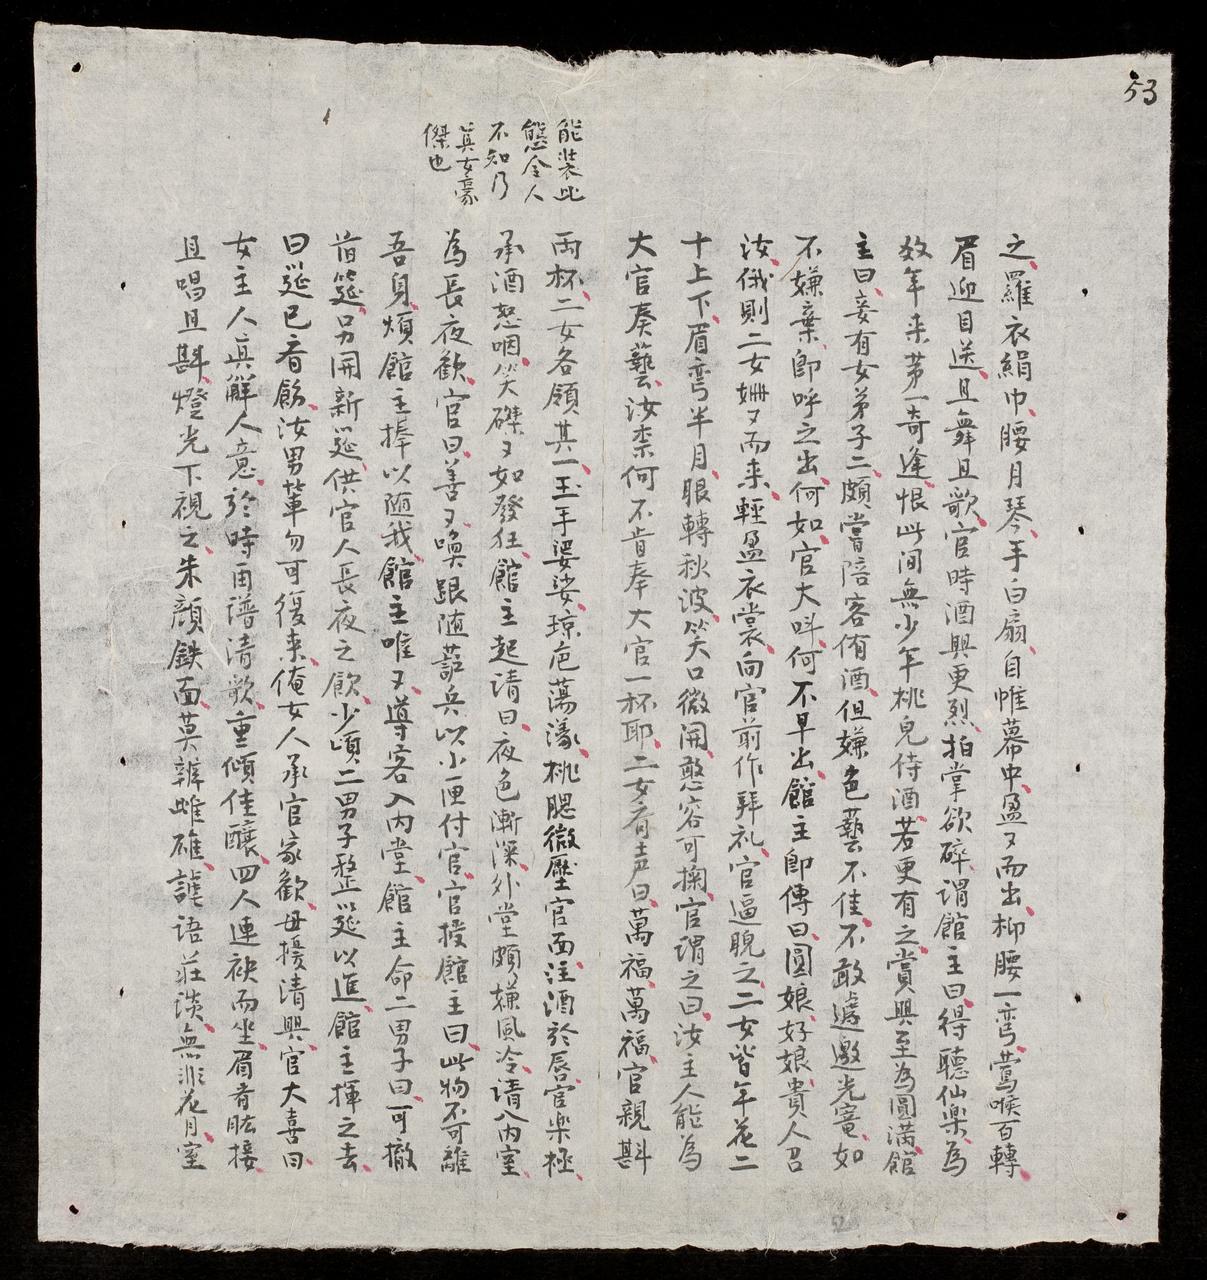 53
能裝此
態令人
不知乃
真女豪
傑也
之羅衣絹巾腰月琴手白扇自帷幕中盈又而出柳腰一彎鶯喉百轉
眉迎目送且舞且歌官時酒興更烈拍掌欲碎謂館主曰得聽仙樂為
数年来苐一奇逢恨此间無少年桃皃侍酒若更有之賞興至為圓滿館
主曰妾有女弟子二頗嘗陪客侑酒但嫌色藝不佳不敢遽邀光寵如
不嫌棄卽呼之出何如官大呌何不早出館主卽傳曰圓娘好娘貴人召
汝俄則二女姍又而来輕盈衣裳向官前作拜礼官逼睨之二女皆年花二
十上下眉彎半月眼轉秋波笑口微開憨容可掬官謂之曰汝主人能為
大官奏藝汝柰何不肯奉大官一杯耶二女齊声曰萬福萬福官親斟
両杯二女各領其一玉手婆娑琼卮蕩漾桃腮微壓官面注酒於唇官樂極
承酒恣咽笑磔又如發狂館主起请曰夜色漸深外堂頗嫌風冷请入内室
為長夜歡官曰善又喚跟隨蓝兵以小匣付官官授館主曰此物不可離
吾身煩館主捧以随我館主唯又導客入内堂館主命二男子曰可撤
旧筵另開新筵供官人長夜之飲少頃二男子整筵以進館主揮之去
曰筵已有餝汝男輩勿可復来俺女人承官家歡毋援清興官大喜曰
女主人真解人意於時甫谱清歌重傾佳釀四人連袂而坐眉肴肱接
且唱且斟燈光下視之朱顏鉄面莫辨雌雄謔语莊谈無非花月室